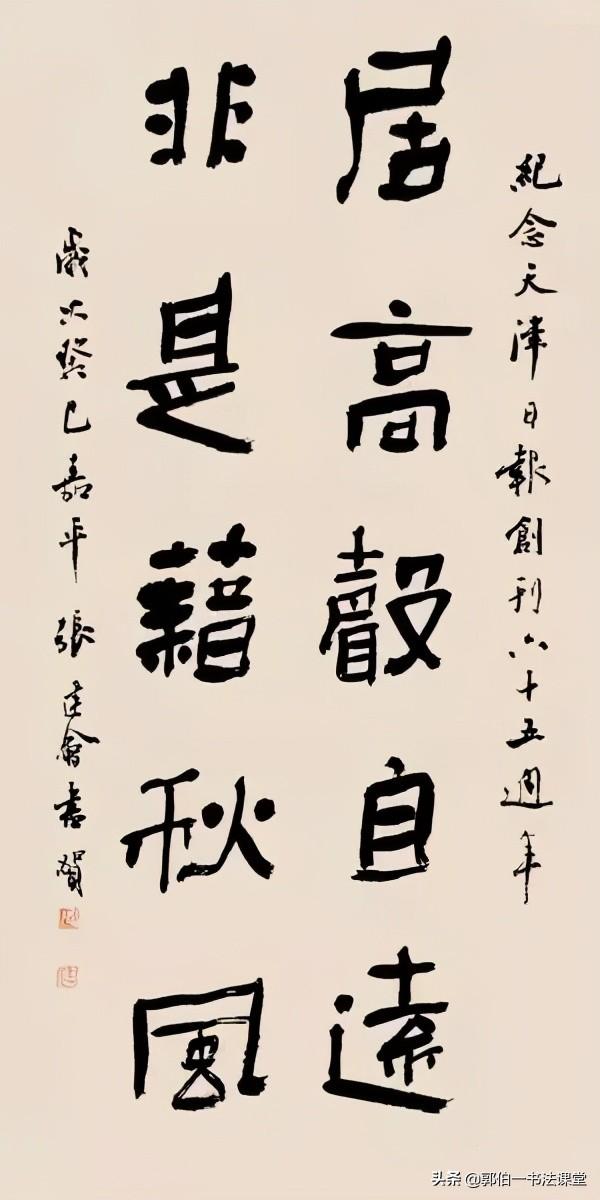 紀念天津日報創刊六十五週年
居高聲自遠
非是藉秋風
歲次癸巳嘉平張建會書賀
头条 @郭伯一书法课堂